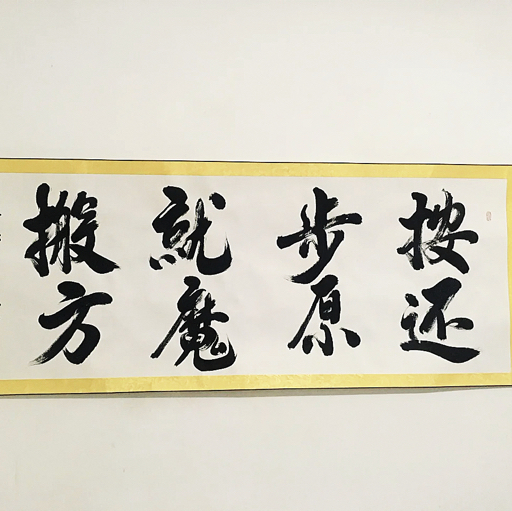 按步就搬
还原魔方